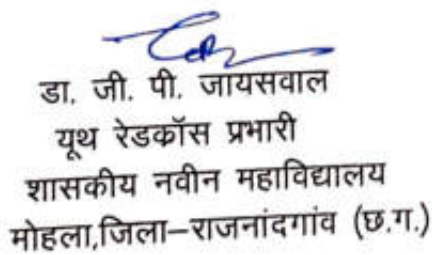 डा. जी. पी. जायसवाल
यूथ रेडकॉस प्रभारी
शासकीय नवीन महाविद्यालय
मोहला,जिला–राजनांदगांव (छ.ग.)